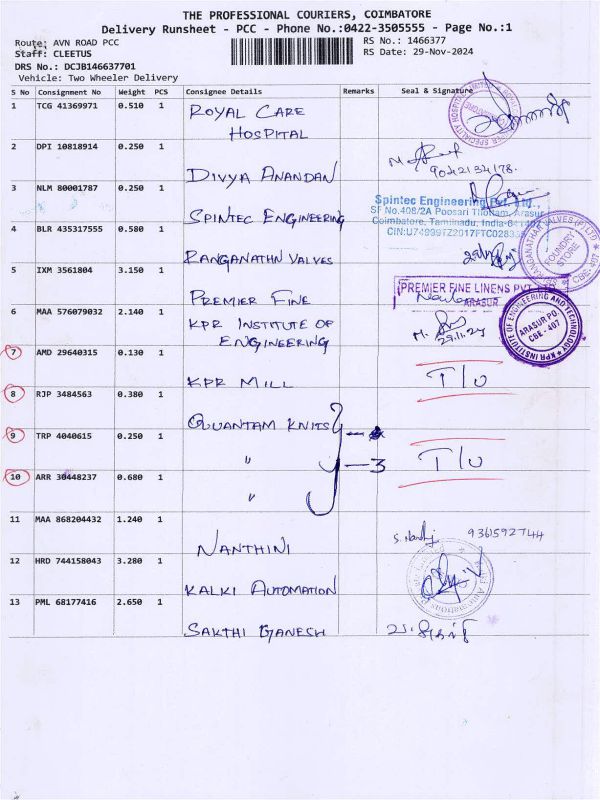 THE PROFESSIONAL COURIERS, COIMBATORE
Delivery Runsheet - PCC - Phone No.:0422-3505555 - Page No.:1
Route: AVN ROAD PCC RS No.: 1466377
Staff: CLEETUS RS Date: 29-Nov-2024
DRS No.: DCJB146637701
Vehicle: Two Wheeler Delivery
S No Consignment No Weight PCS Consignee Details Remarks Seal & Signature
1 TCG 41369971 0.510 1 ROYAL CARE
HOSPITAL
2 DPI 10818914 0.250 1 DIVYA ANANDAN
9042134178.
3 NLM 80001787 0.250 1 SPINTEC ENGINEERING
Spintec Engineering Pvt. Ltd.,
SF No.408/2A Poosari Thottam, Arasur
Coimbatore, Tamilnadu, India-641407
4 BLR 435317555 0.580 1 RANGANATHN VALVES
RANGANATHAN VALVES (P) LTD
FOUNDRY
STORE
CBE-407
5 IXM 3561804 3.150 1 PREMIER FINE
PREMIER FINE LINENS PVT. LTD
ARASUR
6 MAA 576079032 2.140 1 KPR INSTITUTE OF
ENGINEERING
29.11.24
KPR INSTITUTE OF ENGINEERING AND TECHNOLOGY
ARASUR PO.
CBE - 407
7 AMD 29640315 0.130 1 KPR MILL T/O
8 RJP 3484563 0.380 1 QUANTAM KNITS
9 TRP 4040615 0.250 1 " - 3 T/O
10 ARR 30448237 0.680 1 "
11 MAA 868204432 1.240 1 NANTHINI
9361592744
12 HRD 744158043 3.280 1 KALKI AUTOMATION
13 PML 68177416 2.650 1 SAKTHI GANESH